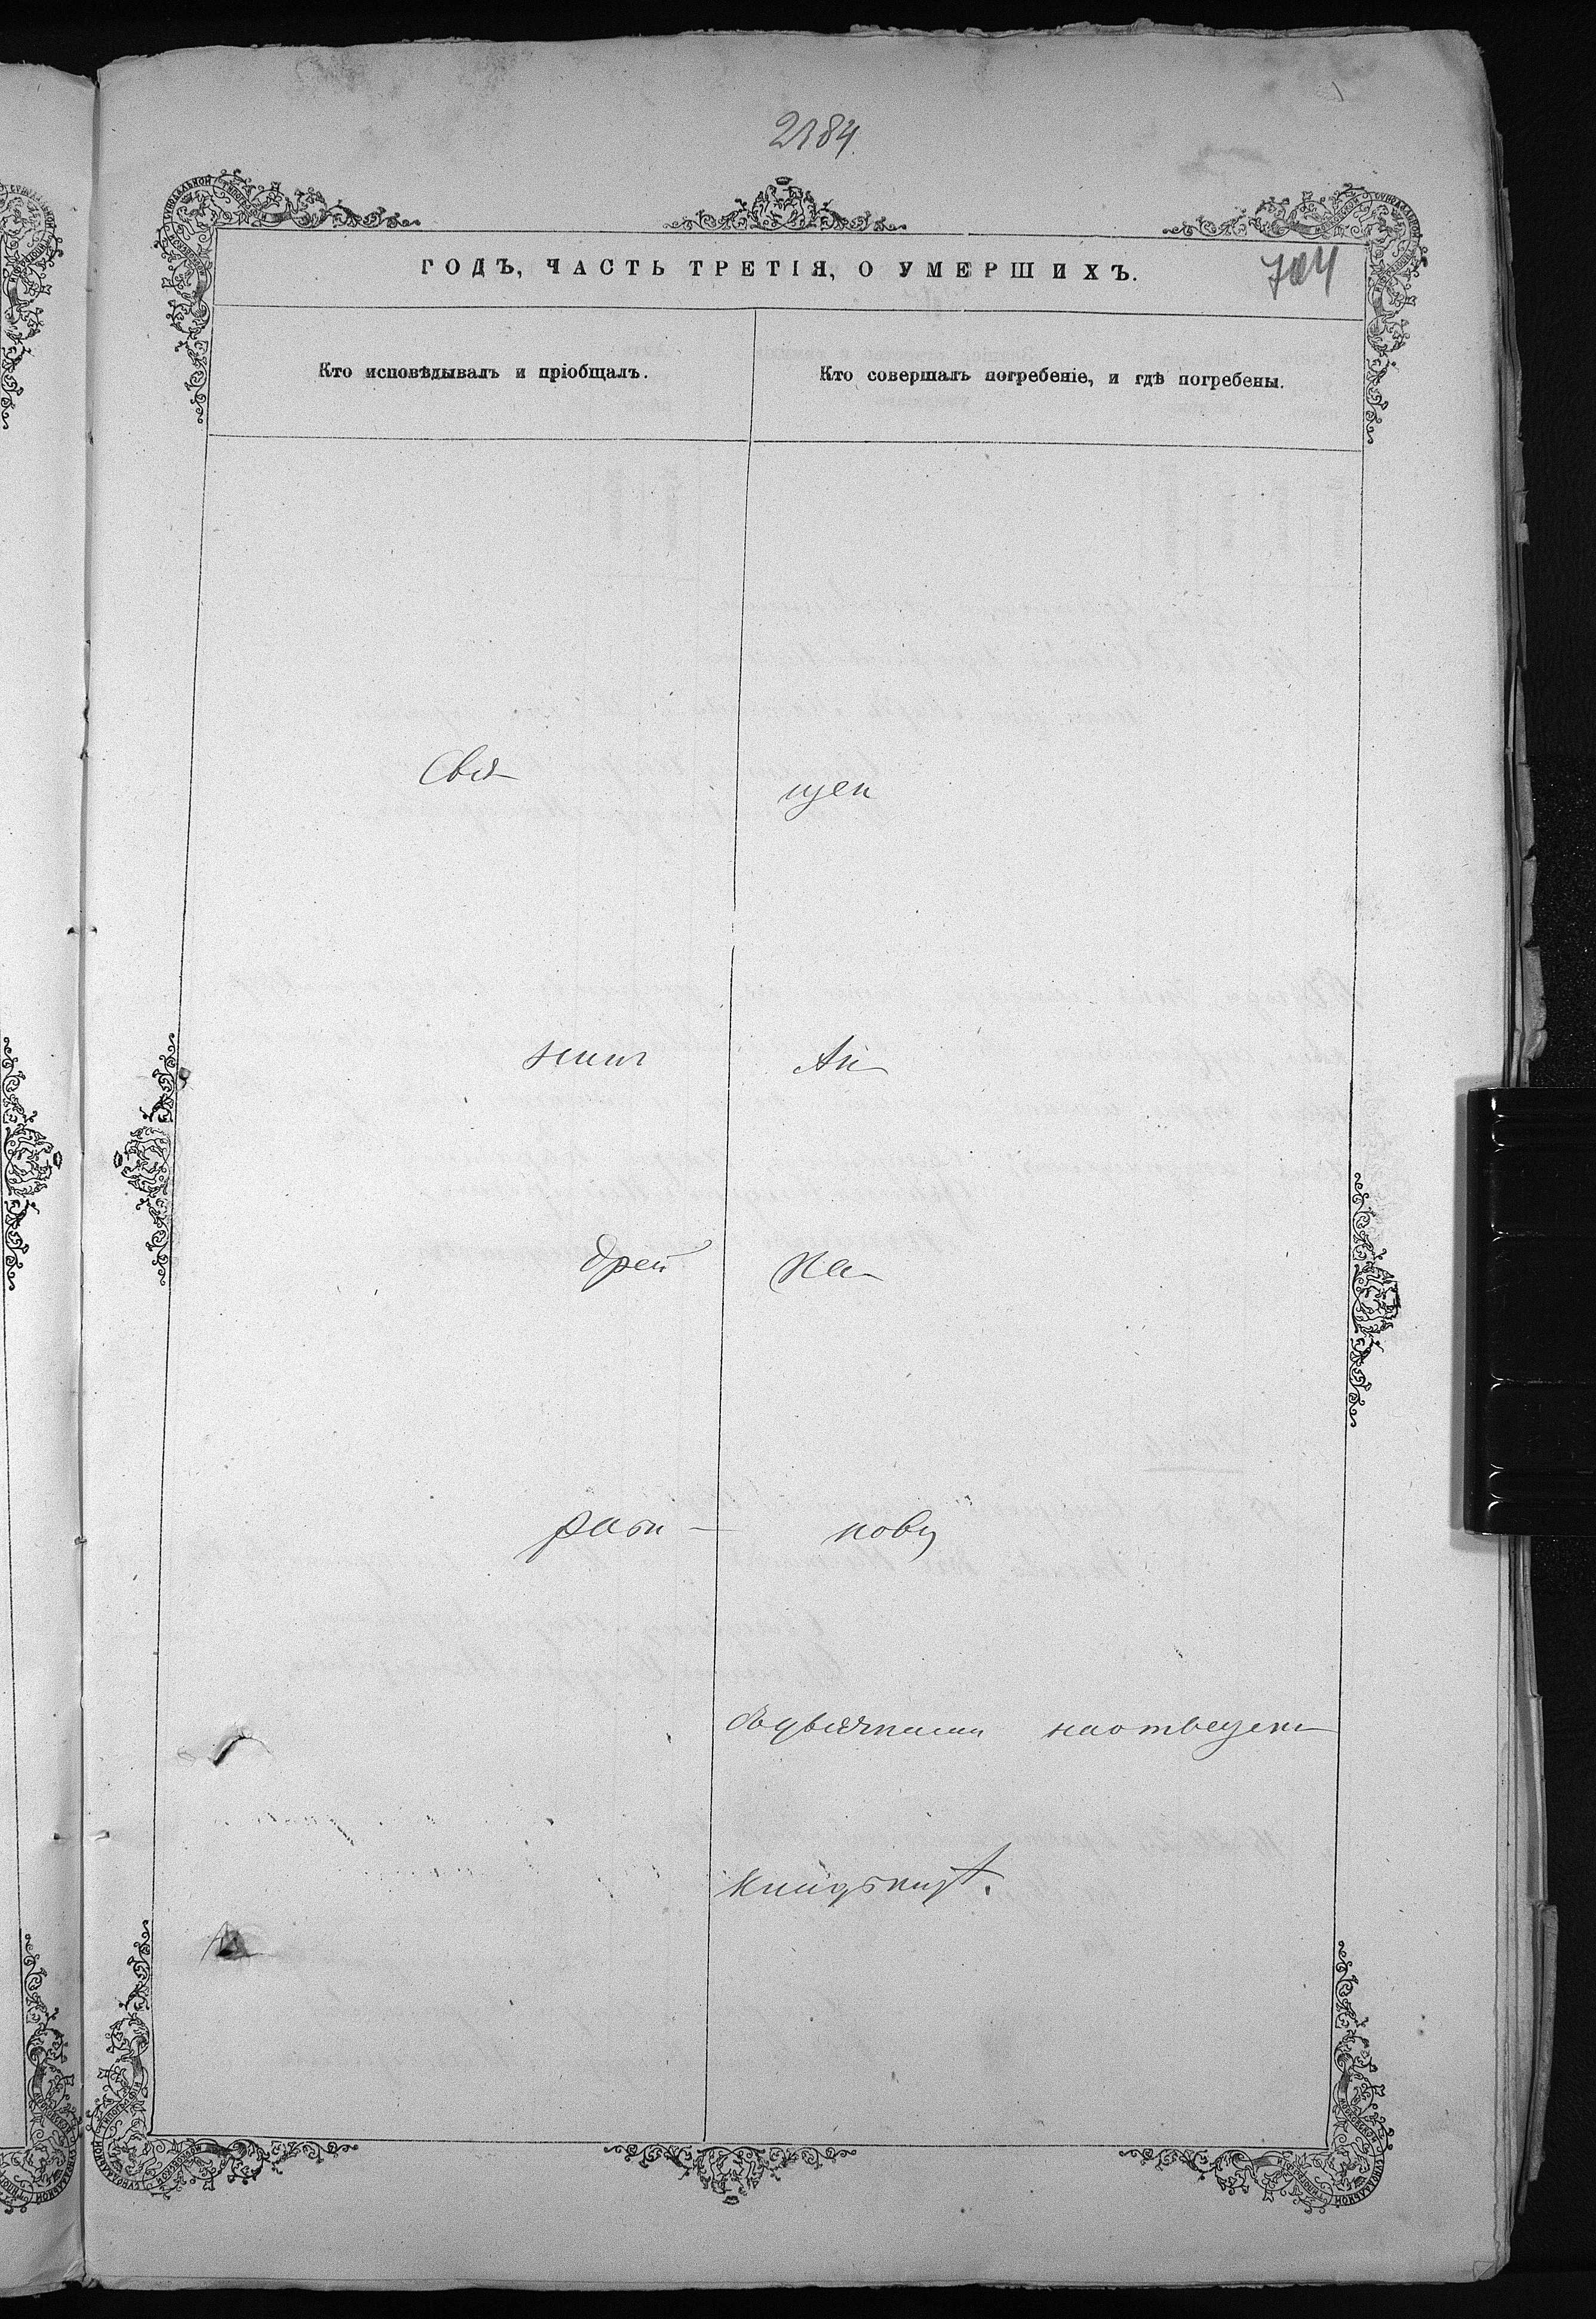 2184.
ГОДЪ, ЧАСТЬ ТРЕТІЯ, О УМЕРШИХЪ.
704
Кто исповѣдывалъ и пріобщалъ.
Кто совершалъ погребеніе, и гдѣ погребены.
Свя-
щен
никъ
Ан-
дрей
Ка-
рат-
нову